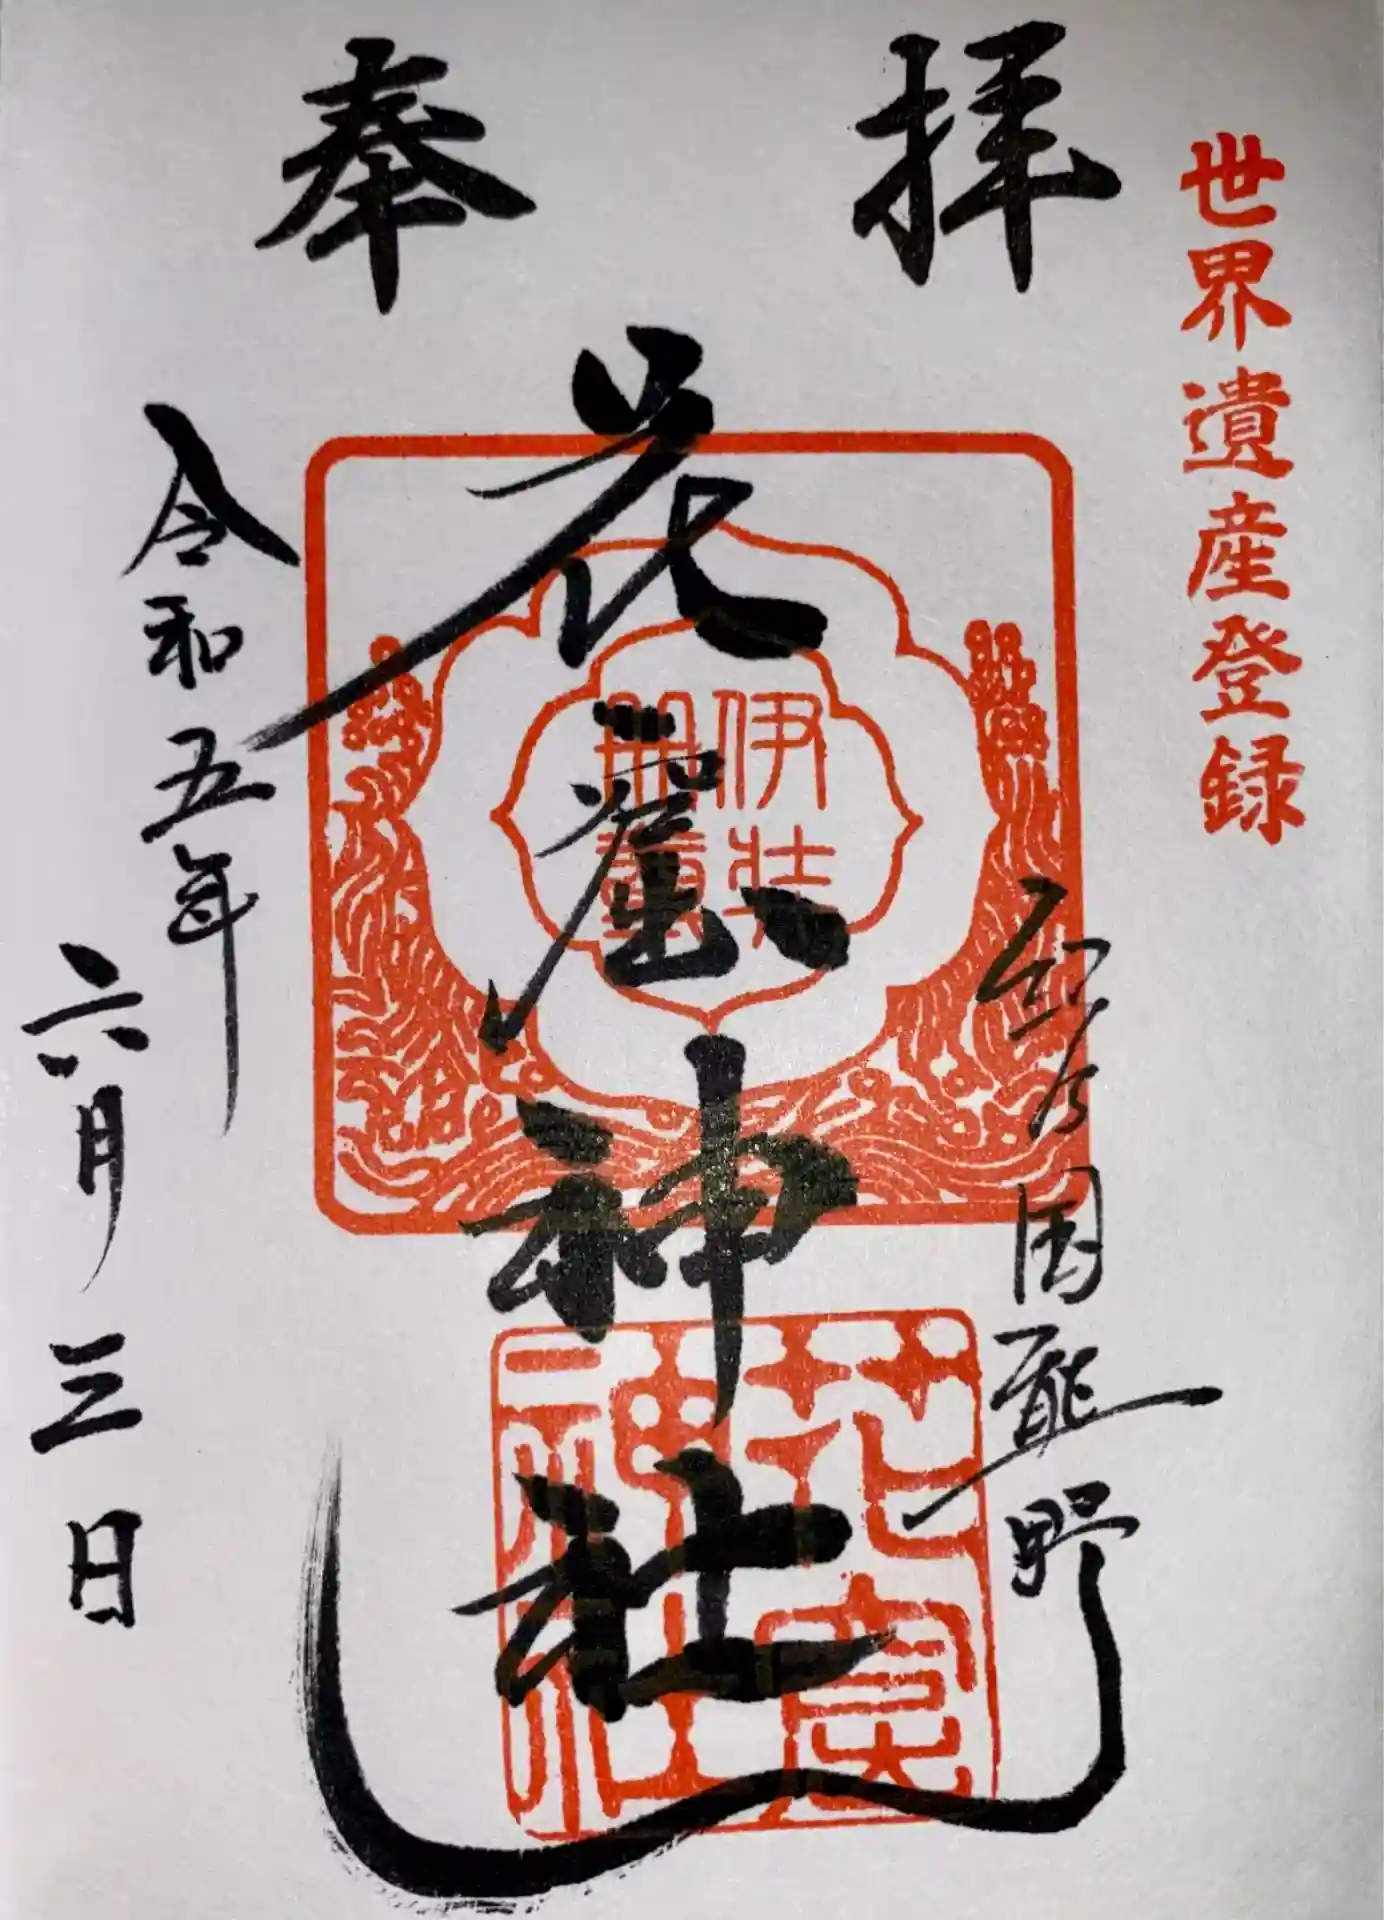 奉拝
世界遺産登録
国熊野
花窟神社
伊弉冊尊
花窟神社
令和五年
六月三日